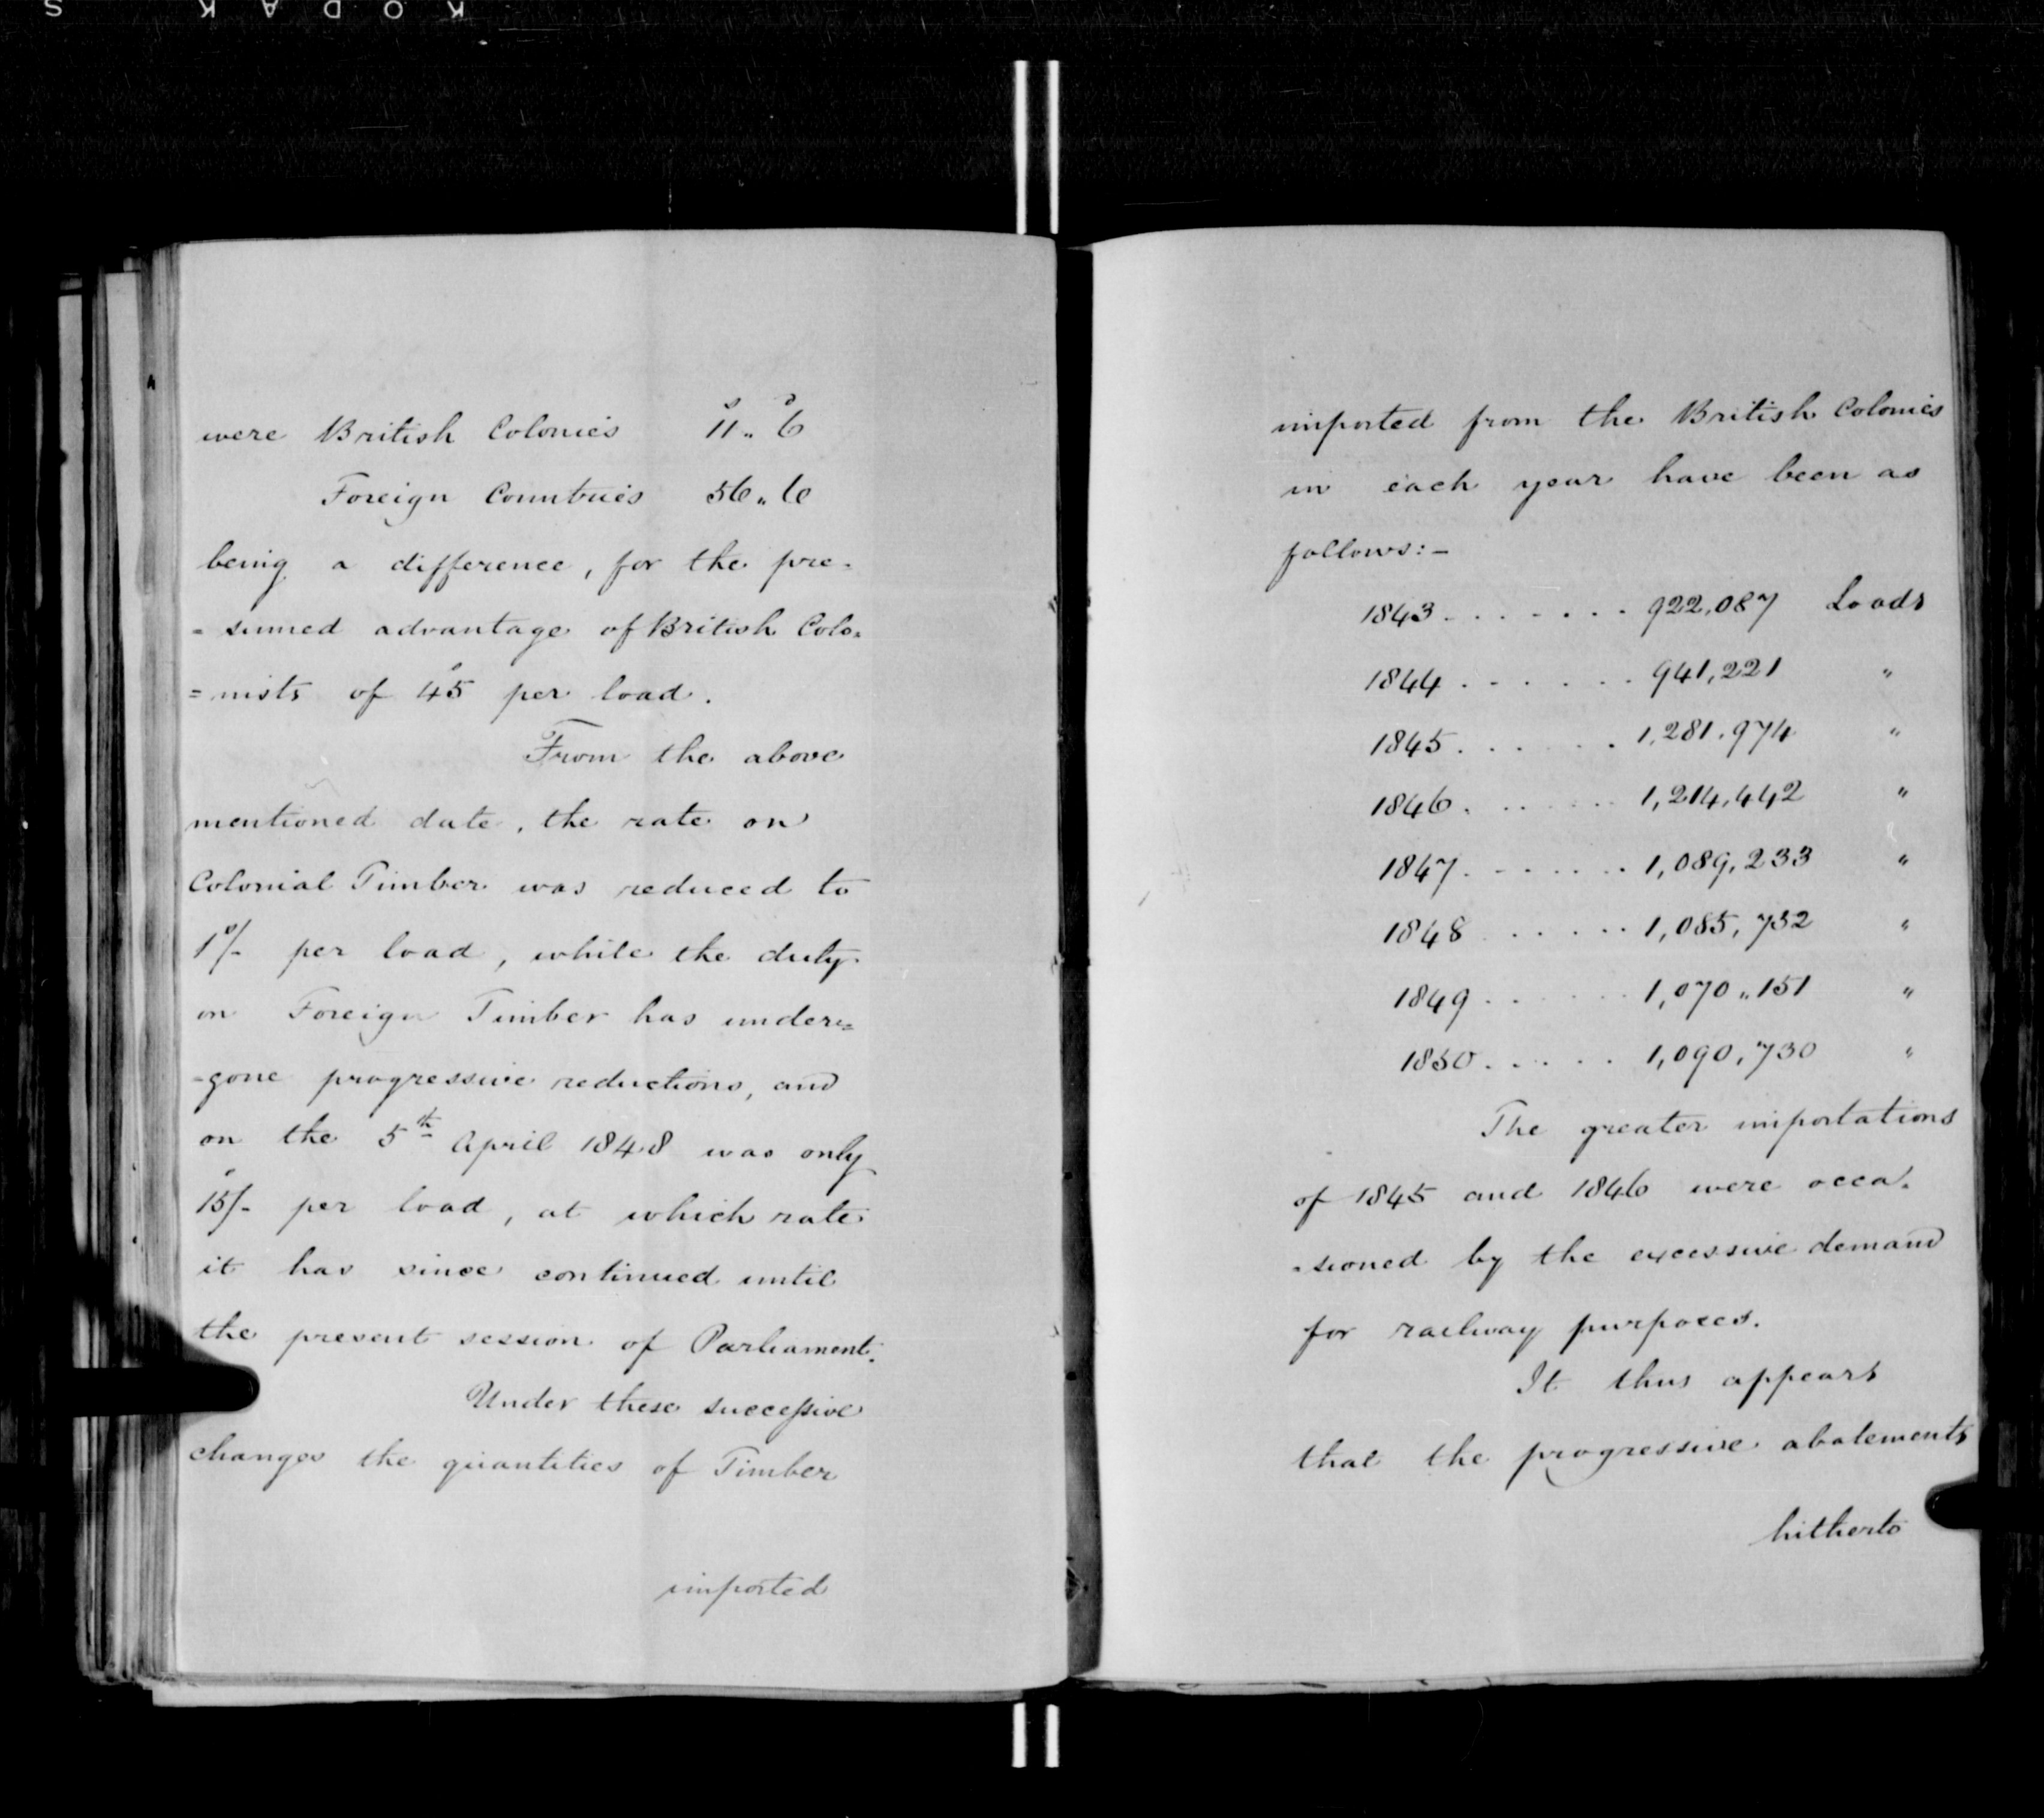 KODAK S
were British Colonies 11s. 6d
Foreign Countries 56. 6
being a difference, for the pre-
=sumed advantage of British Colo-
=nists of 45s per load.
From the above
mentioned date, the rate on
Colonial Timber was reduced to
1s/- per load, while the duty
on Foreign Timber has under=
-gone progressive reductions, and
on the 5th April 1848 was only
15s/- per load, at which rate
it has since continued until
the present session of Parliament.
Under these successive
changes the quantities of Timber
imported
imported from the British Colonies
in each year have been as
follows:-
1843 . . . . . . . 922,087 Loads
1844 . . . . . . 941,221 "
1845 . . . . . . 1,281,974 "
1846 . . . . . . 1,214,442 "
1847 . . . . . . . 1,089,233 "
1848 . . . . . . 1,085,732 "
1849 . . . . . . 1,070,151 "
1850 . . . . . 1,090,730 "
The greater importations
of 1845 and 1846 were occa-
-sioned by the excessive demand
for railway purposes.
It thus appears
that the progressive abatements
hitherto